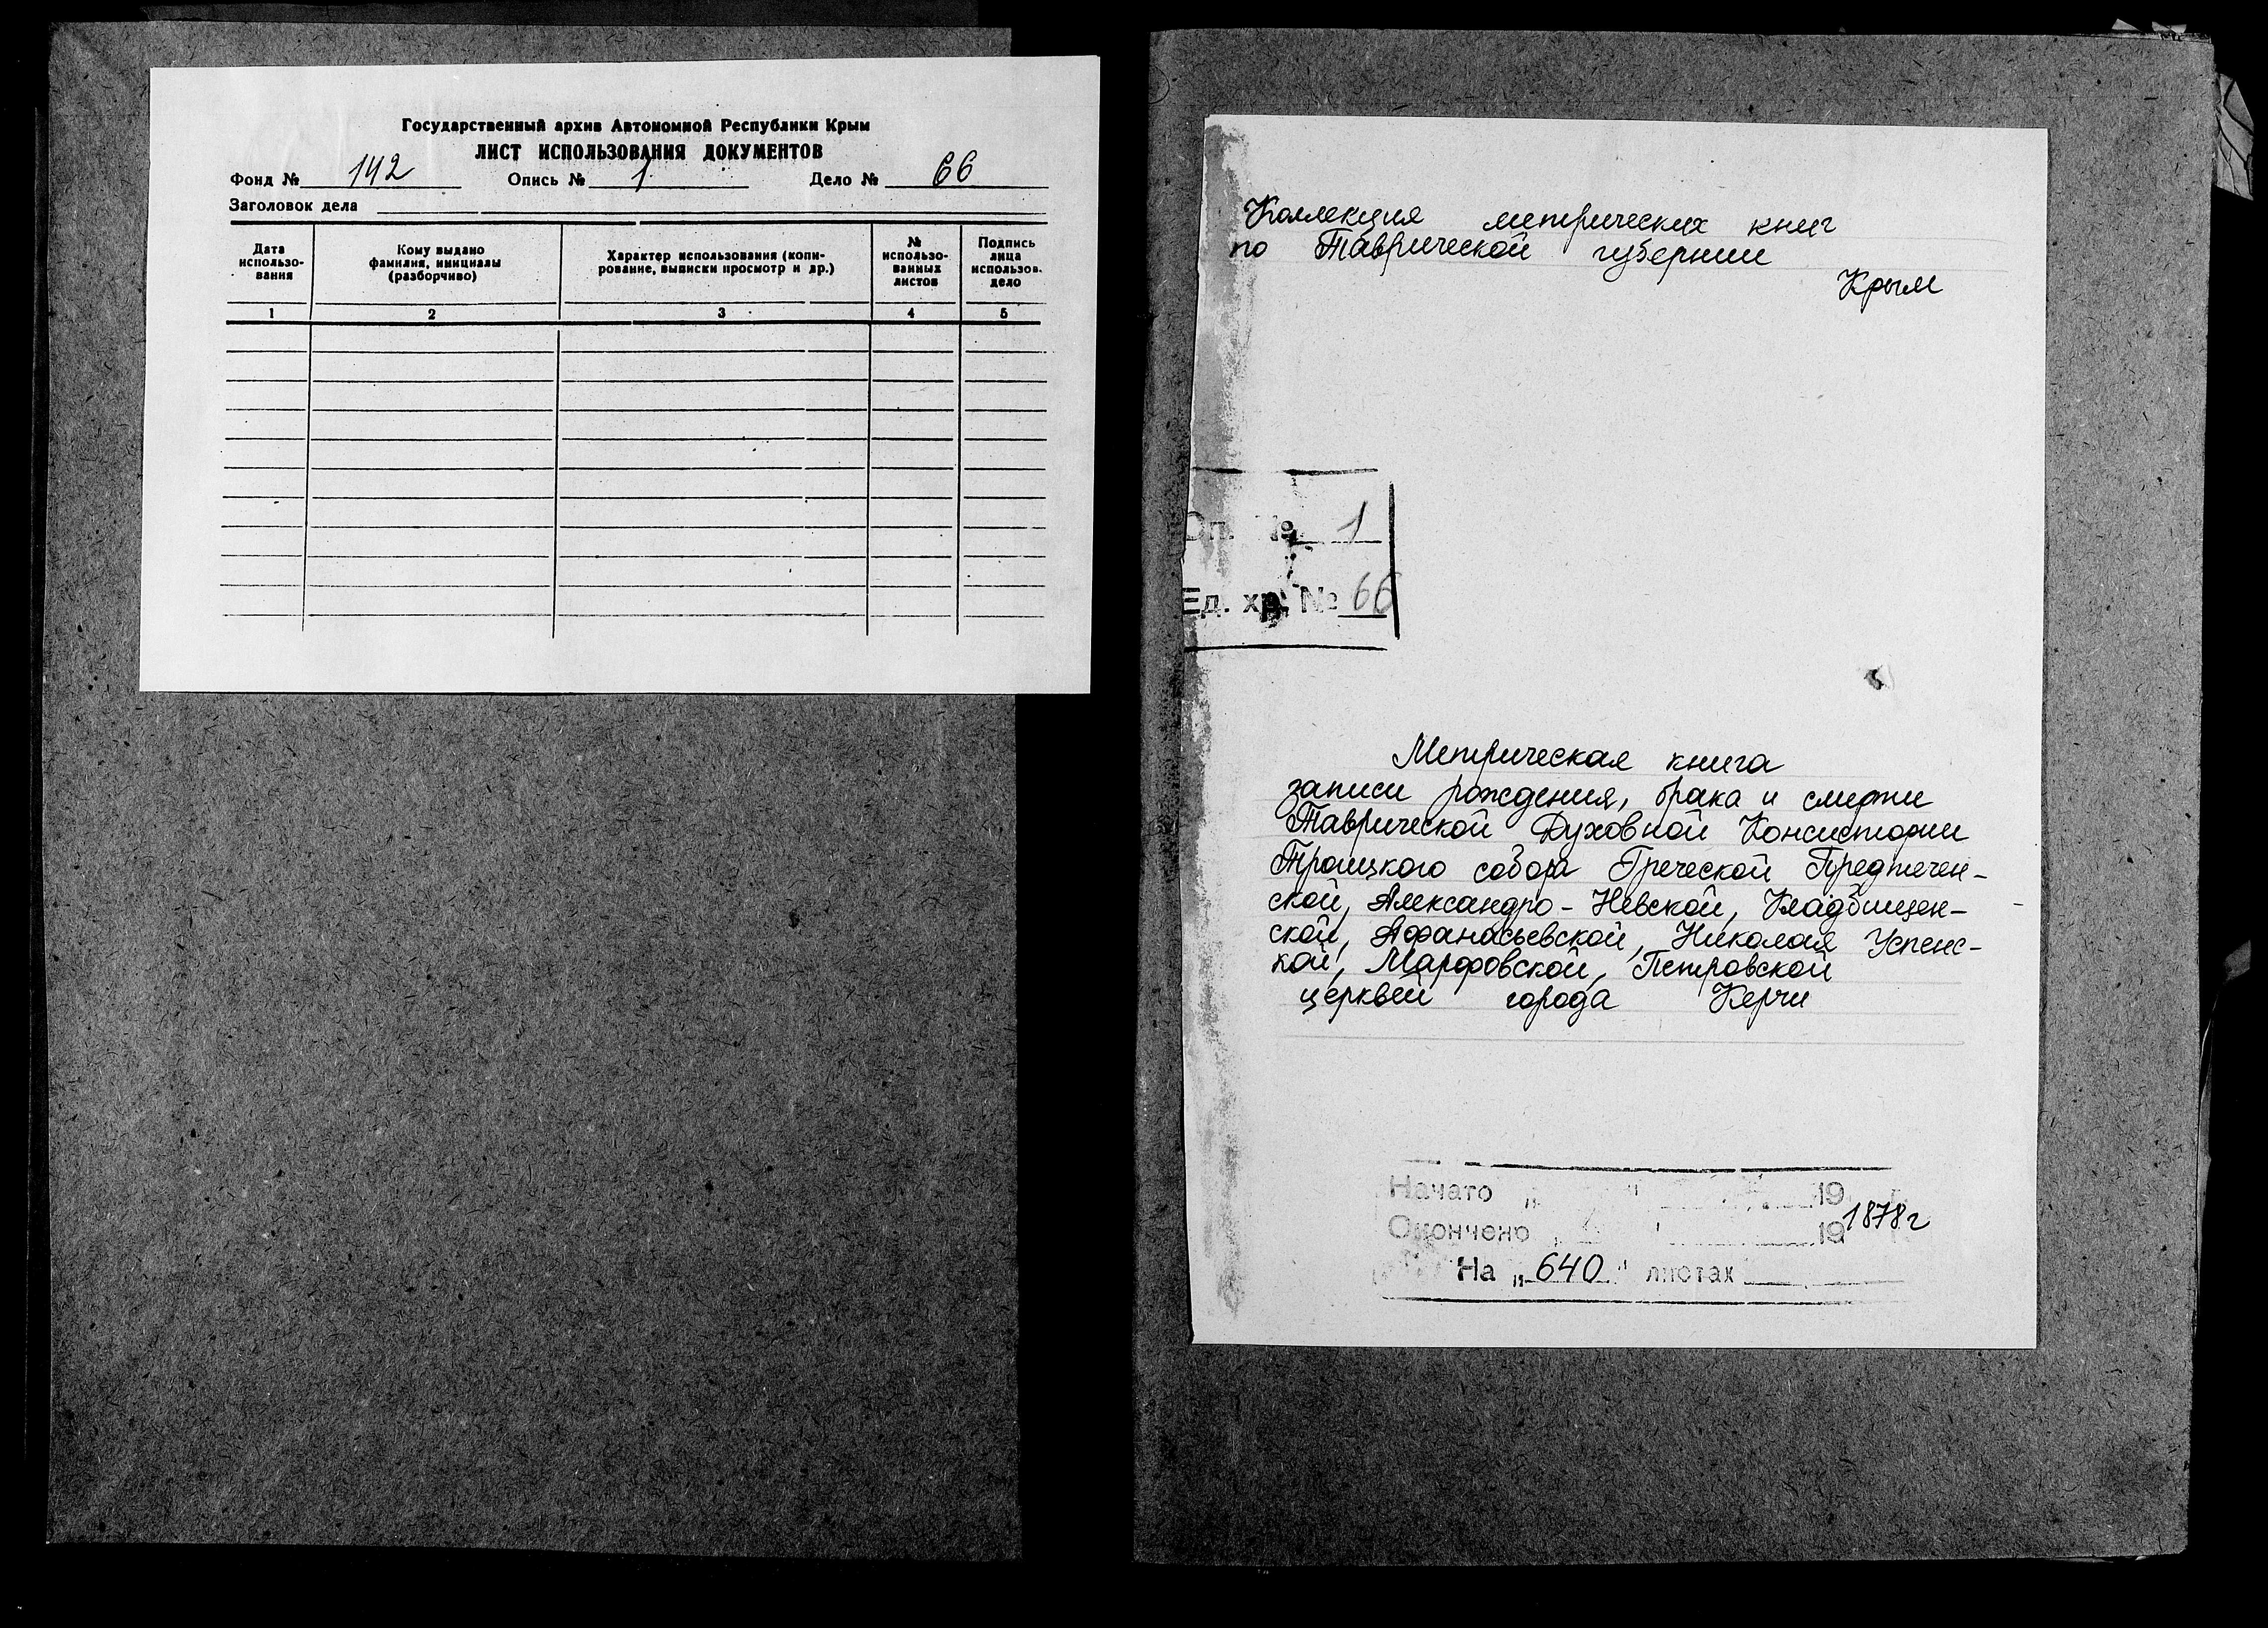 Государственный архив Автономной Республики Крым
ЛИСТ ИСПОЛЬЗОВАНИЯ ДОКУМЕНТОВ
Фонд № 142 Опись № 1 Дело № 66
Заголовок дела
Дата использо-вания
Кому выдано фамилия, инициалы (разборчиво)
Характер использования (копи-рование, выписки просмотр и др.)
№ использо-ванных листов
Подпись лица использов. дело
1 2 3 4 5
Коллекция метрических книг
по Таврической губернии
Крым
Оп. № 1
Ед. хр. № 66
Метрическая книга
записи рождения, брака и смерти
Таврической Духовной Консистории
Троицкого собора Греческой Предтечен-
ской, Александро-Невской, Кладбищен-
ской, Афанасьевской, Николая Успенс-
кой, Марфовской, Петровской
церквей города Керчи
Начато „ " 19 г.
Окончено „ " 19 1878г
На „640" листах